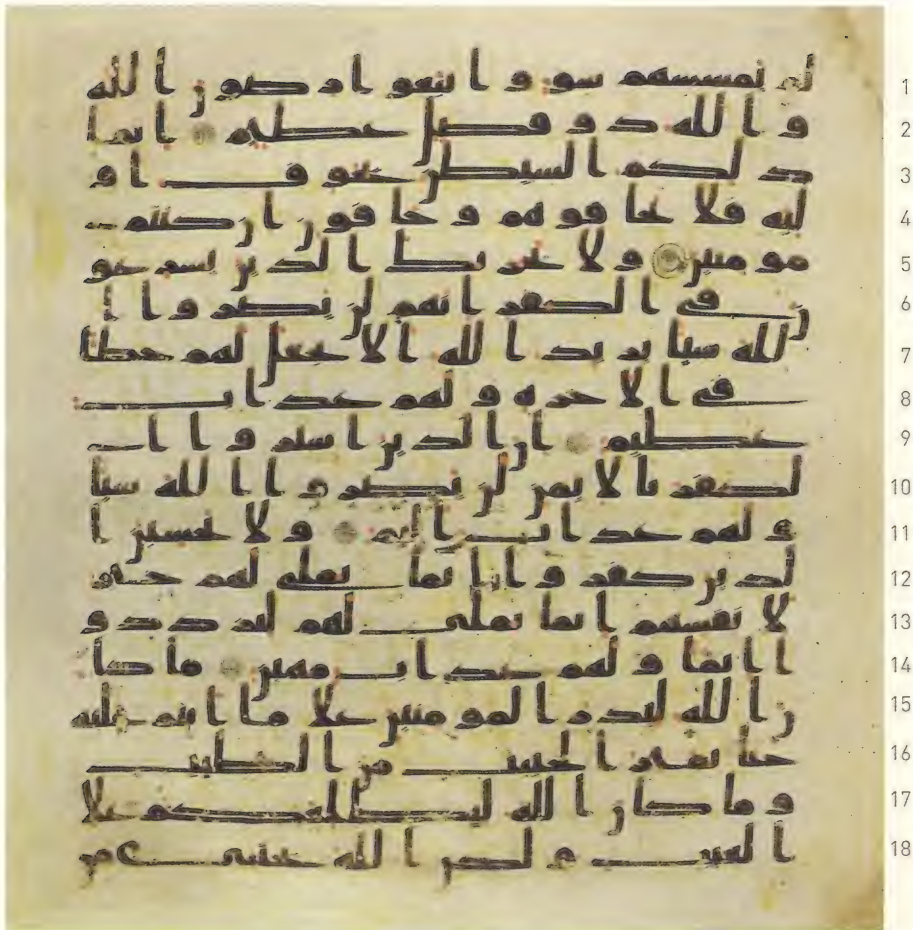 لم يمسسهم سو و اتبعوا رضون الله 1
و الله ذو فضل عظيم انما 2
ذلكم الشيطن يخوف او 3
ليه فلا تخافوهم و خافون ان كنتم 4
مومنين و لا يحزنك الذين يسرعو 5
ن في الكفر انهم لن يضروا ا 6
لله شيا يريد الله الا يجعل لهم حظا 7
في الاخرة و لهم عذاب 8
عظيم ان الذين اشتروا ا 9
لكفر بالايمن لن يضروا الله شيا 10
و لهم عذاب اليم و لا يحسبن ا 11
لذين كفروا انما نملي لهم خير 12
لانفسهم انما نملي لهم ليزددو 13
ا اثما و لهم عذاب مهين ما كا 14
ن الله ليذر المومنين علا ما انتم عليه 15
حتا يميز الخبيث من الطيب 16
و ما كان الله ليطلعكم علا 17
الغيب و لكن الله يجتبي م 18